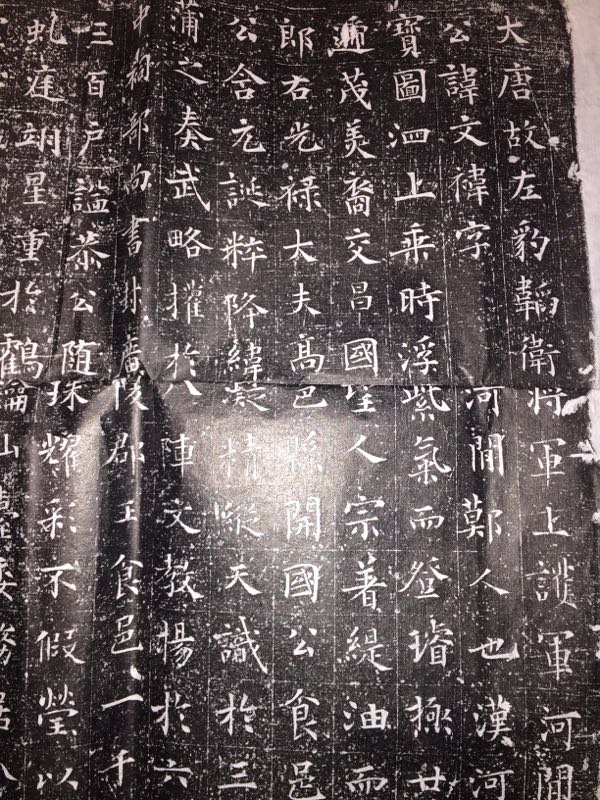 大唐故左豹韜衛將軍上護軍河間
公諱文禕字 河間鄭人也漢河
寶圖泗上乘時浮紫氣而登璿極廿
遞茂美裔交昌國望人宗著緹油而
郎右光祿大夫高邑縣開國公食邑
公含元誕粹降緯凝精縱天識於三
蒲之奏武略擢於八陣文教揚於六
中祠部尚書封廣陵郡王食邑一千
三百戶謚恭公隨珠耀彩不假瑩以
虬庭翊星重於鶴籥山